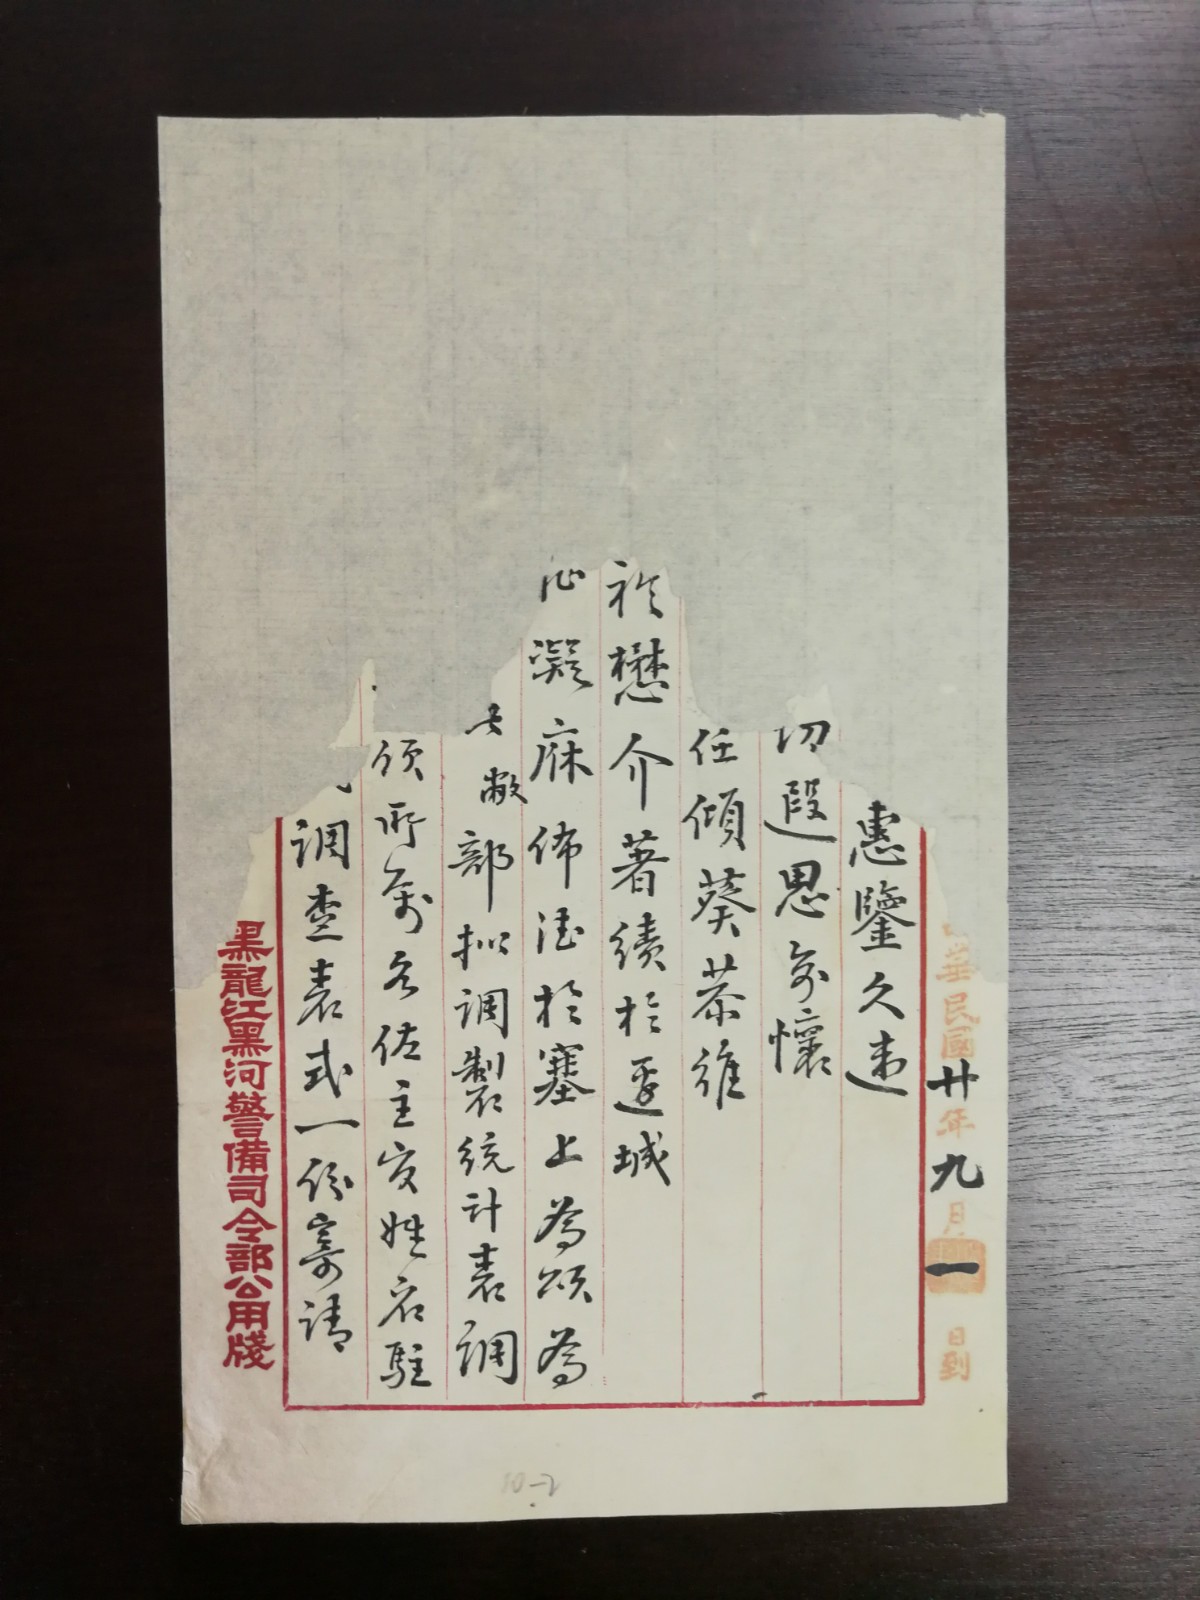 華民國廿年九月一日到
惠鑒久違
切遐思命懷
任傾葵恭維
懋介著績於邊城
凝庥佈德於塞上為頌為
敝部擬調製統計表調
須所屬各佐主官姓名駐
調查表式一份寄請
黑龍江黑河警備司令部公用牋
10-2